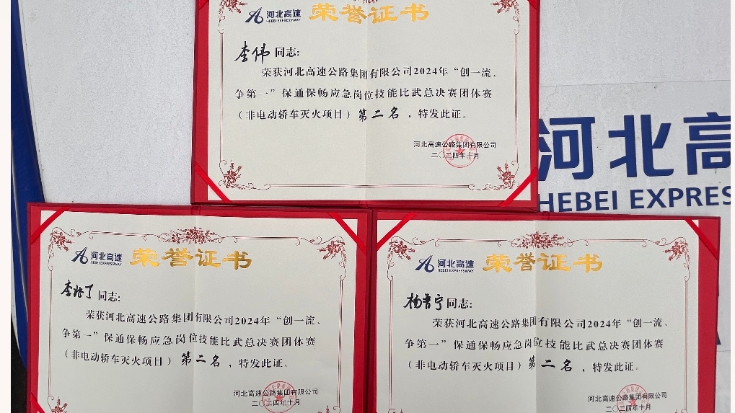 河北高速
荣誉证书
李伟 同志：
荣获河北高速公路集团有限公司2024年“创一流、
争第一”保通保畅应急岗位技能比武总决赛团体赛
（非电动轿车灭火项目）第二名，特发此证。
河北高速公路集团有限公司
二〇二四年十月
河北高
HEBEI EXPRES
河北高速
荣誉证书
同志：
荣获河北高速公路集团有限公司2024年“创一流、
争第一”保通保畅应急岗位技能比武总决赛团体赛
（非电动轿车灭火项目）第二名，特发此证。
河北高速公路集团有限公司
二〇二四年十月
河北高速
荣誉证书
杨晋宁 同志：
荣获河北高速公路集团有限公司2024年“创一流、
争第一”保通保畅应急岗位技能比武总决赛团体赛
（非电动轿车灭火项目）第二名，特发此证。
河北高速公路集团有限公司
二〇二四年十月